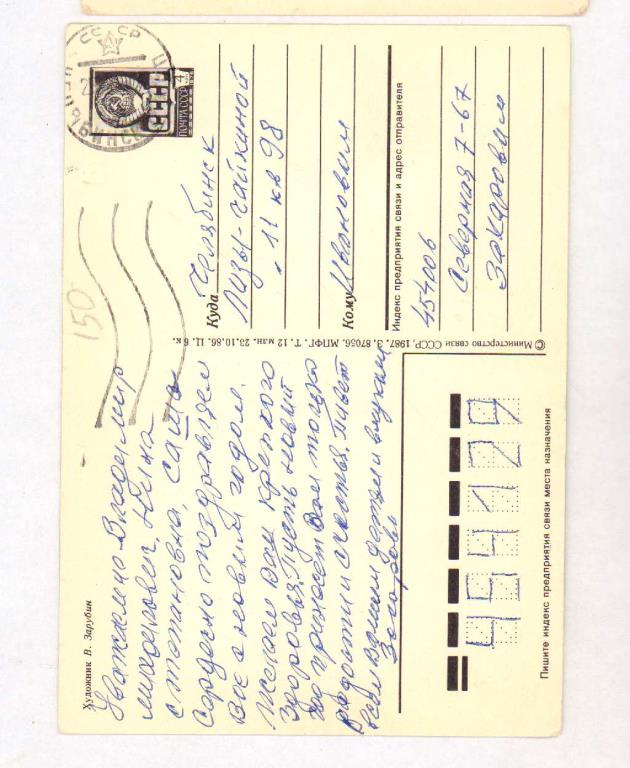 Художник В. Зарубин
Уважаемые Владимир
михайлович, Нина
степановна, Саша
Сердесно поздравляем
Вас с новым годом.
Желаем Вам крепкого
здоровья. Пусть новый
принесет Вам только
радости и счастья. Привет
Вашим детям и внукам
Захаровы
© Министерство связи СССР, 1987. З. 87056. МПФГ. Т. 12 млн. 23.10.86. Ц. 6 к.
СССР
ЧЕЛЯБИНСК
4
к
СССР
ПОЧТА СССР
150
Куда Челябинск
Лизы-Чайкиной
11 кв 98
Кому Ивоновым
Индекс предприятия связи и адрес отправителя
454006
Северная 7-67
Захаровым
454129
Пишите индекс предприятия связи места назначения